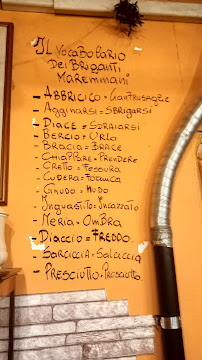 IL VOCABOLARIO
DEI BRIGANTI
MAREMMANI
- ABBRICICO = CIANFRUSAGLIE
- AGGINARSI = SBRIGARSI
- DIACE = SDRAIARSI
- BERCIO = URLO
- BRACIA = BRACE
- CHIAPPARE = PRENDERE
- CRETTO = FESSURA
- CUDERA = FORMICA
- GNUDO = NUDO
- INGUASTITO = INCAZZATO
- MERIA = OMBRA
- DIACCIO = FREDDO
- SARCICCIA = SALCICCIA
- PRESCIUTTO = PROSCIUTTO